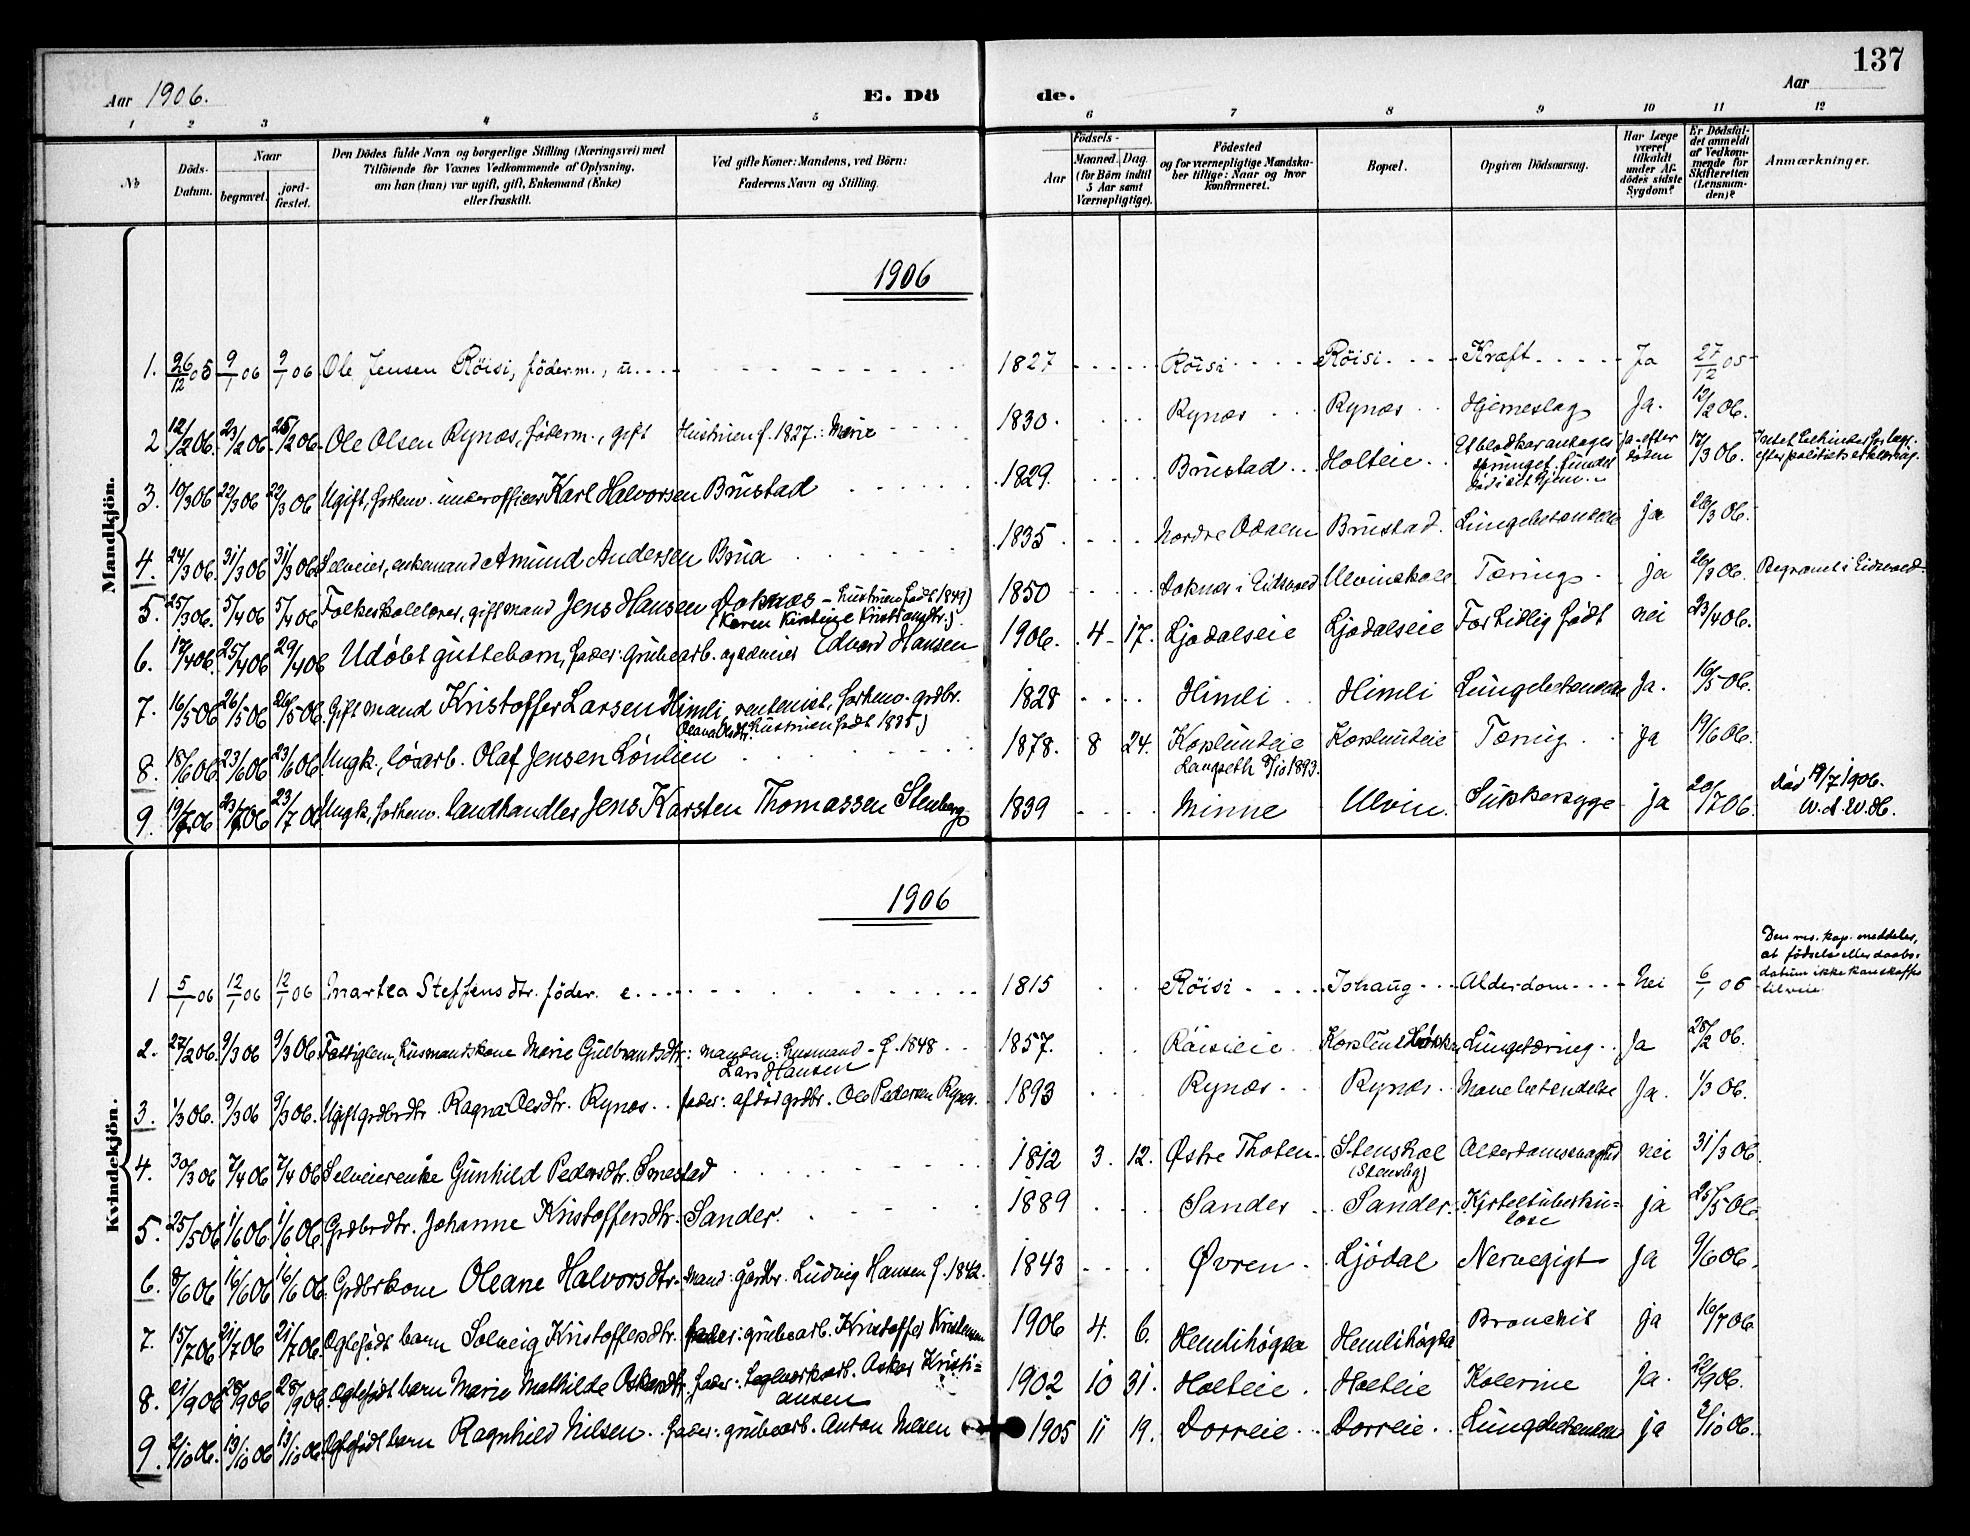 137
Aar 1906. E. Dö de. Aar
1 2 3 4 5 6 7 8 9 10 11 12
No
Döds-Datum.
Naar
begravet.
jord-fæstet.
Den Dödes fulde Navn og borgerlige Stilling (Næringsvei) med
Tilföiende for Voxnes Vedkommende af Oplysning,
om han (hun) var ugift, gift, Enkemand (Enke)
eller fraskilt.
Ved gifte Koner: Mandens, ved Börn:
Faderens Navn og Stilling.
Födsels-
Aar
Maaned. Dag.
(for Börn indtil
5 Aar samt
Værnepligtige).
Födested
og for værnepligtige Mandska-
ber tillige: Naar og hvor
konfirmeret.
Bopæl.
Opgiven Dödsaarsag.
Har Læge
været
tilkaldt
under Af-
dödes sidste
Sygdom?
Er Dödsfal-
det anmeldt
af Vedkom-
mende for
Skifteretten
(Lensman-
den)?
Anmærkninger.
Mandkjön.
1906
1. 26/12 05 9/1 06 9/1 06 Ole Jensen Röisi, föderm., u. 1827 Röisi Röisi Kræft Ja 27/12 05
2 12/2 06. 23/2 06 25/2 06. Ole Olsen Rynæs, föderm., gift Hustruen f. 1827.: Marie 1830. Rynæs Rynæs Hjerneslag Ja. 13/2 06.
3. 10/3 06 22/3 06 22/3 06 Ugift, forhenv. underofficer Karl Halvorsen Brustad 1829. Brustad Holteie Et blodkar antages sprunget. Fundet død i sit hjem. ja - efter døden 17/3 06. Intet til hinder for begr. efter politiets erklæring.
4. 24/3 06. 31/3 06 31/3 06. Selveier, enkemand Amund Andersen Brua 1835. Nordre Odalen Brustad. Lungebetændelse ja 26/3 06.
5. 25/3 06. 5/4 06 5/4 06 Folkeskolelærer, gift mand Jens Hansen Doknæs - hustruen født 1849) (Karen Kirstine Kristiansdtr.) 1850 Doknæs i Eidsvold Ulvinskole Tæring ja 26/3 06. Begravet i Eidsvold.
6. 17/4 06. 25/4 06 29/4 06 Udöbt guttebarn, fader: Grubearb. og selveier Edvard Hansen 1906. 4 17. Ljødalseie Ljødalseie For tidlig født nei 23/4 06.
7. 16/5 06 26/5 06 26/5 06. Gift mand Kristoffer Larsen Himli, rentenist, forhenv. grdbr. Oleana Olsdtr. (hustruen født 1835) 1828 Himli Himli Lungebetændelse Ja. 16/5 06.
8. 18/6 06 23/6 06 23/6 06. Ungk., løsarb. Olaf Jensen Lönlien 1878. 8 24. Korslundeie Langseth 1893. Korslundeie Tæring ja 19/6 06.
9. 19/7 06 23/7 06 23/7 06 Ungk. forhenv. landhandler Jens Karsten Thomassen Stenberg 1839 Minne Ulvin. Sukkersyge ja 20/7 06. død 19/7 1906.
Kvindekjön.
1906
1 5/1 06 12/1 06 12/1 06 Martea Steffensdtr. föder. e. 1815 Röisi Johaug Alderdom Nei 6/1 06 Den res. kap. meddeles, at fødsels eller daabsdatum ikke kan skaffes tilveie
2. 27/2 06. 9/3 06 9/3 06 Fattiglem, husmandskone Marie Gulbrandsdtr: manden: husmand - f. 1848 Lars Hansen 1857. Röisieie Lungetæring Ja 28/2 06.
3. 1/3 06. 9/3 06 9/3 06. Ugift grdbrdtr. Ragna Olsdtr. Rynæs. fader: afdød grdbr. Ole Pedersen Rynæs. 1893 Rynæs Rynæs Mavebetændelse Ja. 1/3 06.
4. 30/3 06 7/4 06 7/4 06 Selveierenke Gunhild Pedersdtr. Smestad 1812 3. 12. Østre Thoten Stenshol (Stensby) Alderdomssvaghed nei 31/3 06.
5. 25/5 06 1/6 06. 1/6 06. Grdbrdtr. Johanne Kristoffersdtr. Sander. 1889 Sander Sander. Kjerteltuberkulose ja 25/5 06.
6. 8/6 06 16/6 06 16/6 06. Grdbrkone Oleane Halvorsdtr. Mand: gårdbr. Ludvig Hansen f. 1842. 1843 Øvren Ljödal Nervegigt Ja 9/6 06.
7. 15/7 06 21/7 06 21/7 06. Ægtefødt barn Solveig Kristoffersdtr. fader: grubearb. Kristoffer Kristensen 1906 4. 6. Hemlihögda Hemlihögda Bronchit ja 16/7 06
8. 21/9 06 28/9 06 28/9 06. Ægtefødt barn Marie Mathilde Oskarsdtr. fader: Teglverksarb. Oskar Kristiansen 1902 10 31. Holteie Holteie Kolerine Ja. 22/9 06.
9. 2/10 06. 13/10 06 13/10 06. Ægtefødt barn Ragnhild Nilsen. fader: grubearb. Anton Nilsen 1905 11 19. Dorreie Dorreie Lungebetændelse ja 2/10 06.